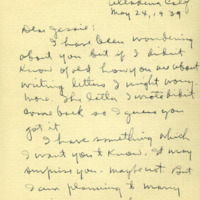 Altadena Calif
May 24, 1939
Dear Jessie:
I have been wondering
about you but if I didnt
know of old how you are about
writing letters I might worry
more. The letter I wrote didnt
come back so I guess you
got it
I have something which
I want you to know. It may
surprise you. maybe not But
I am planning to marry